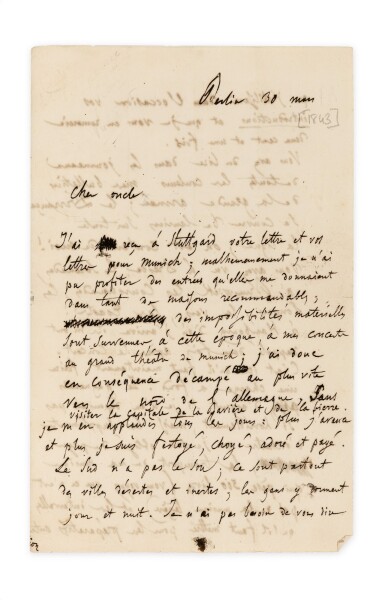 Berlin 30 mars
[1843]
Cher oncle
J'ai reçu à Stuttgard votre lettre et vos
lettres pour Munich ; malheureusement je n'ai
pu profiter des entrées qu'elles me donnaient
dans tant de maisons recommandables ;
des impossibilités matérielles
sont survenues, à cette époque, à mes concerts
au grand théâtre de Munich ; j'ai donc
en conséquence décampé au plus vite
vers le nord de l'allemagne, sans
visiter la capitale de la Bavière et de la bierre.
je m'en applaudis tous les jours : plus j'avance
et plus je suis festoyé, choyé, adoré et payé.
Le Sud n'a pas le sou ; ce sont partout
des villes désertes et inertes, les gens y dorment
jour et nuit. Je n'ai pas besoin de vous dire